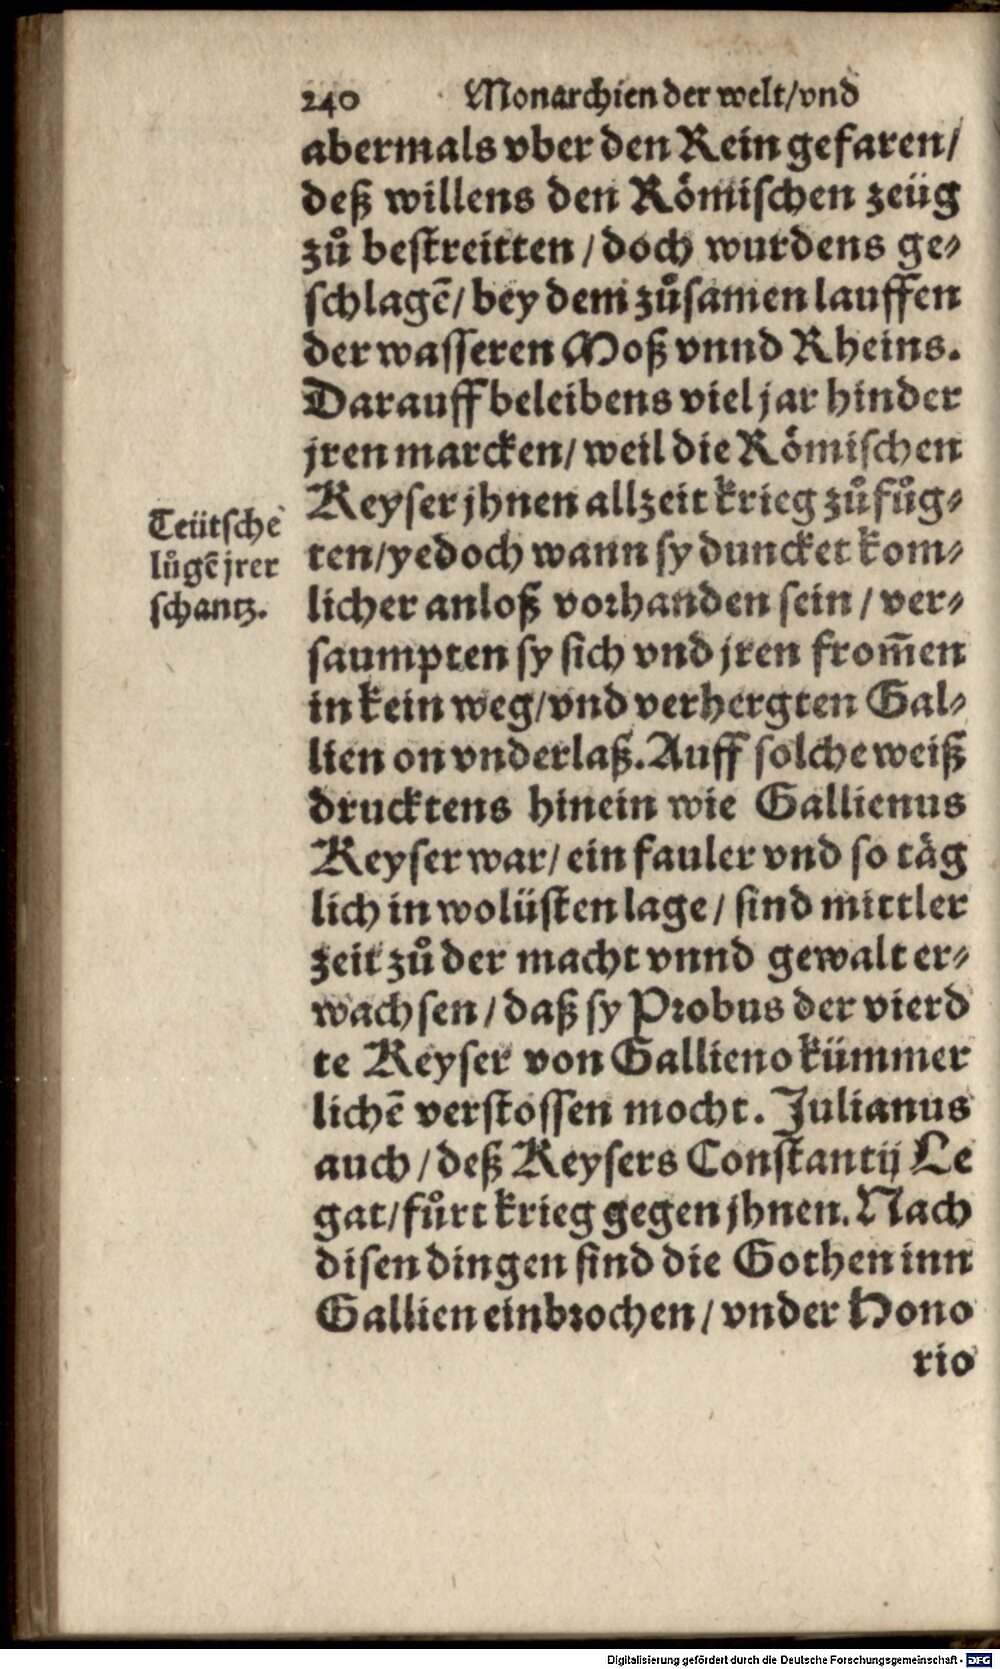 240 Monarchien der welt/vnd
abermals vber den Rein gefaren/
deß willens den Römischen zeüg
zů bestreitten/doch wurdens ge-
schlagē/bey dem zůsamen lauffen
der wasseren Moß vnnd Rheins.
Darauff beleibens viel jar hinder
jren marcken/weil die Römischen
Keyser jhnen allzeit krieg zůfůg-
Teütsche
lůgē jrer
schantz.
ten/yedoch wann sy duncket kom-
licher anloß vorhanden sein/ver-
saumpten sy sich vnd jren from̄en
in kein weg/vnd verhergten Gal-
lien on vnderlaß. Auff solche weiß
drucktens hinein wie Gallienus
Keyser war/ein fauler vnd so täg
lich in wolüsten lage/sind mittler
zeit zů der macht vnnd gewalt er-
wachsen/daß sy Probus der vierd
te Keyser von Gallieno kümmer
lichē verstossen mocht. Julianus
auch/deß Keysers Constantij Le
gat/fůrt krieg gegen jhnen. Nach
disen dingen sind die Gothen inn
Gallien einbrochen/vnder Hono
rio
Digitalisierung gefördert durch die Deutsche Forschungsgemeinschaft - DFG